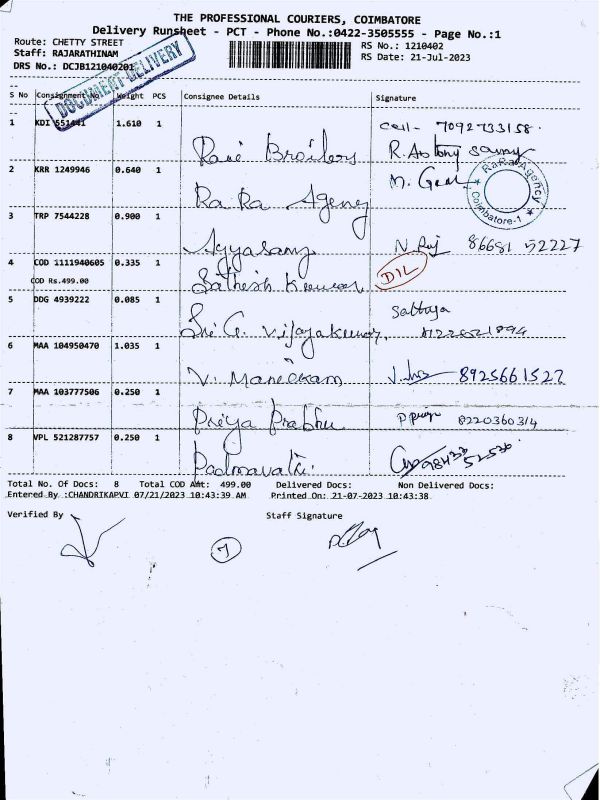 THE PROFESSIONAL COURIERS, COIMBATORE
Delivery Runsheet - PCT - Phone No.:0422-3505555 - Page No.:1
Route: CHETTY STREET
Staff: RAJARATHINAM
DRS No.: DCJB121040201
RS No.: 1210402
RS Date: 21-Jul-2023
DOCUMENT DELIVERY
S No Consignment No Weight PCS Consignee Details Signature
1 KDI 551441 1.610 1 Rani Broilers
Cell - 7092733158.
R. Antony Samy
2 KRR 1249946 0.640 1 Ra Ra Agency M.
RaRa Agency
Coimbatore-1
3 TRP 7544228 0.900 1 Ayyasamy N. Raj 86681 52227
4 COD 1111940605 0.335 1 Sathesh Kumar D/L
COD Rs.499.00
5 DDG 4939222 0.085 1 Sri G. Vijayakumar
6 MAA 104950470 1.035 1 V. Manickam 8925661527
7 MAA 103777506 0.250 1 Priya Prabhu 8220360314
8 VPL 521287757 0.250 1 Padmavathi
Total No. Of Docs: 8 Total COD Amt: 499.00 Delivered Docs: Non Delivered Docs:
Entered By :CHANDRIKAPVI 07/21/2023 10:43:39 AM Printed On: 21-07-2023 10:43:38
Verified By Staff Signature
7